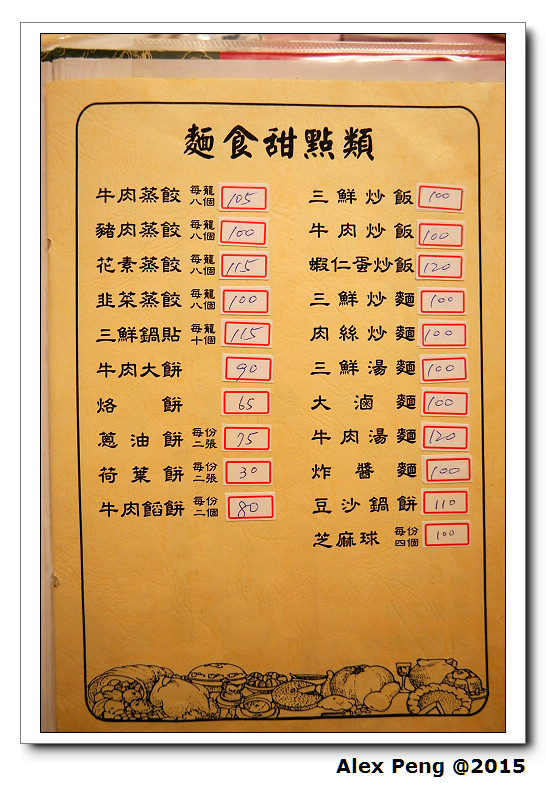 麵食甜點類
牛肉蒸餃 每籠八個 105
豬肉蒸餃 每籠八個 100
花素蒸餃 每籠八個 115
韭菜蒸餃 每籠八個 100
三鮮鍋貼 每籠十個 115
牛肉大餅 90
烙餅 65
蔥油餅 每份二張 75
荷葉餅 每份二張 30
牛肉餡餅 每份二個 80
三鮮炒飯 100
牛肉炒飯 100
蝦仁蛋炒飯 120
三鮮炒麵 100
肉絲炒麵 100
三鮮湯麵 100
大滷麵 100
牛肉湯麵 120
炸醬麵 100
豆沙鍋餅 110
芝麻球 每份四個 100
Alex Peng @2015